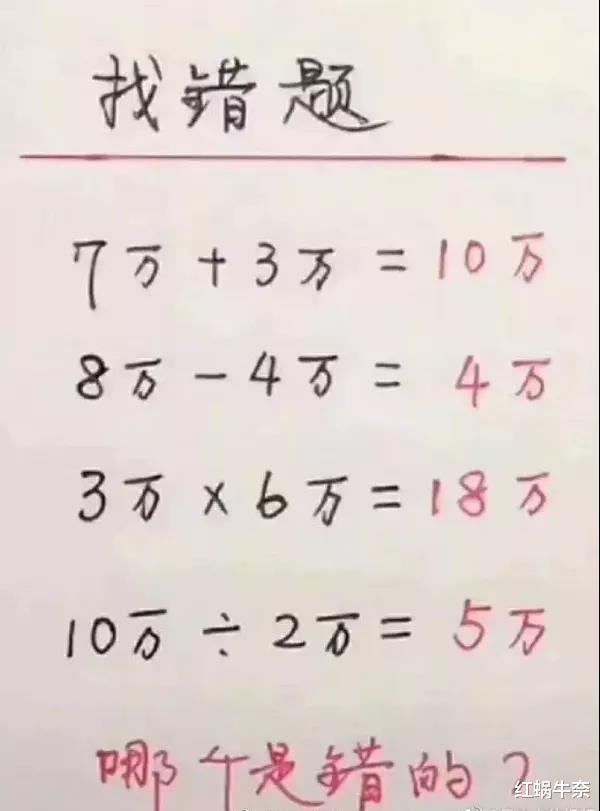 找错题
7万+3万=10万
8万-4万=4万
3万×6万=18万
10万÷2万=5万
哪个是错的?
红蜗牛奈